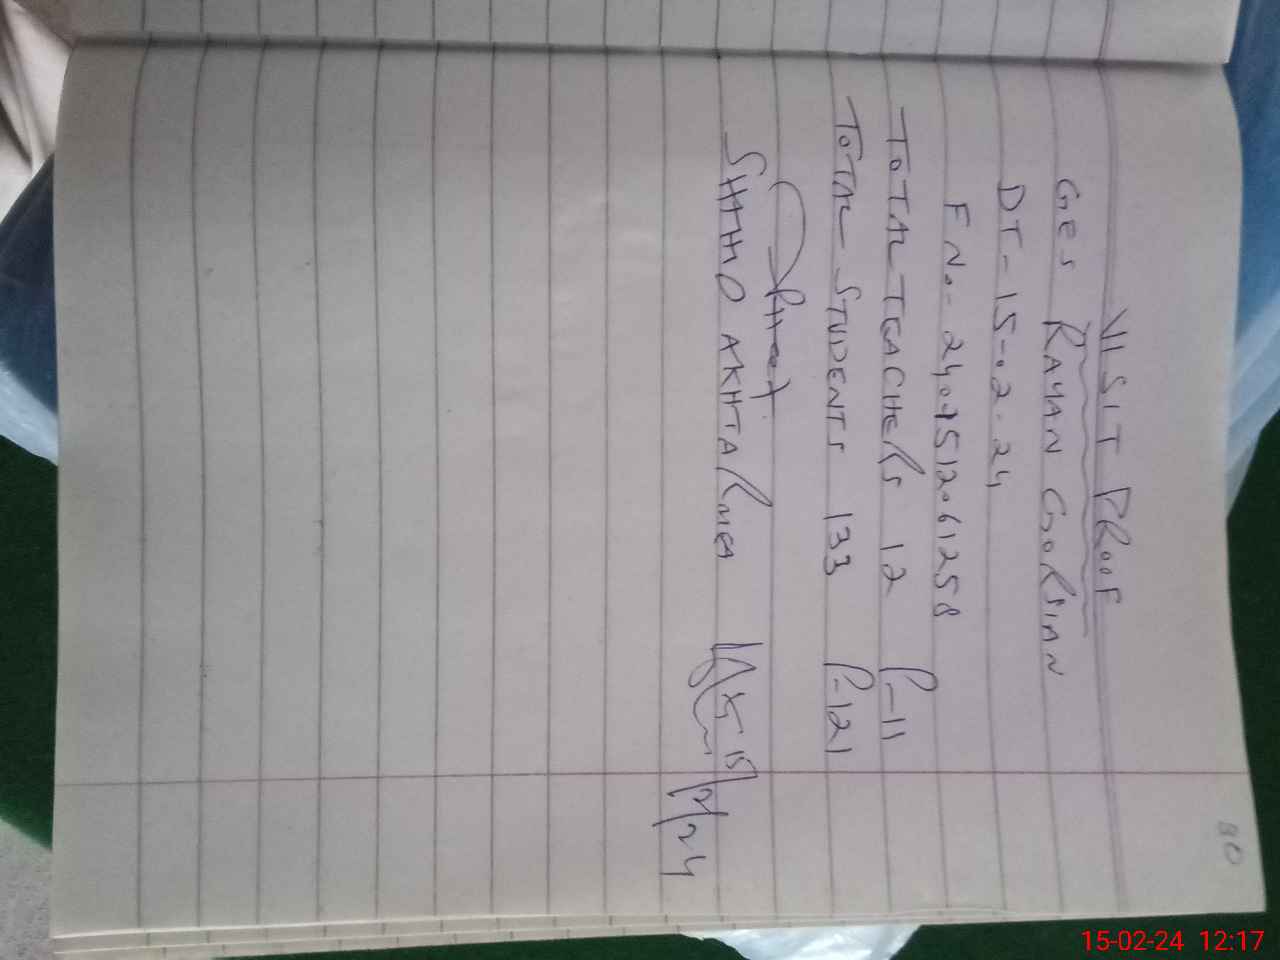 30
VISIT PROOF
GES RAYAN GORSIAN
DT-15-02-24
F No- 2401512061258
TOTAL TEACHERS 12 P-11
TOTAL STUDENTS 133 P-121
SHAHID AKHTAR MEA 15/2/24
15-02-24 12:17